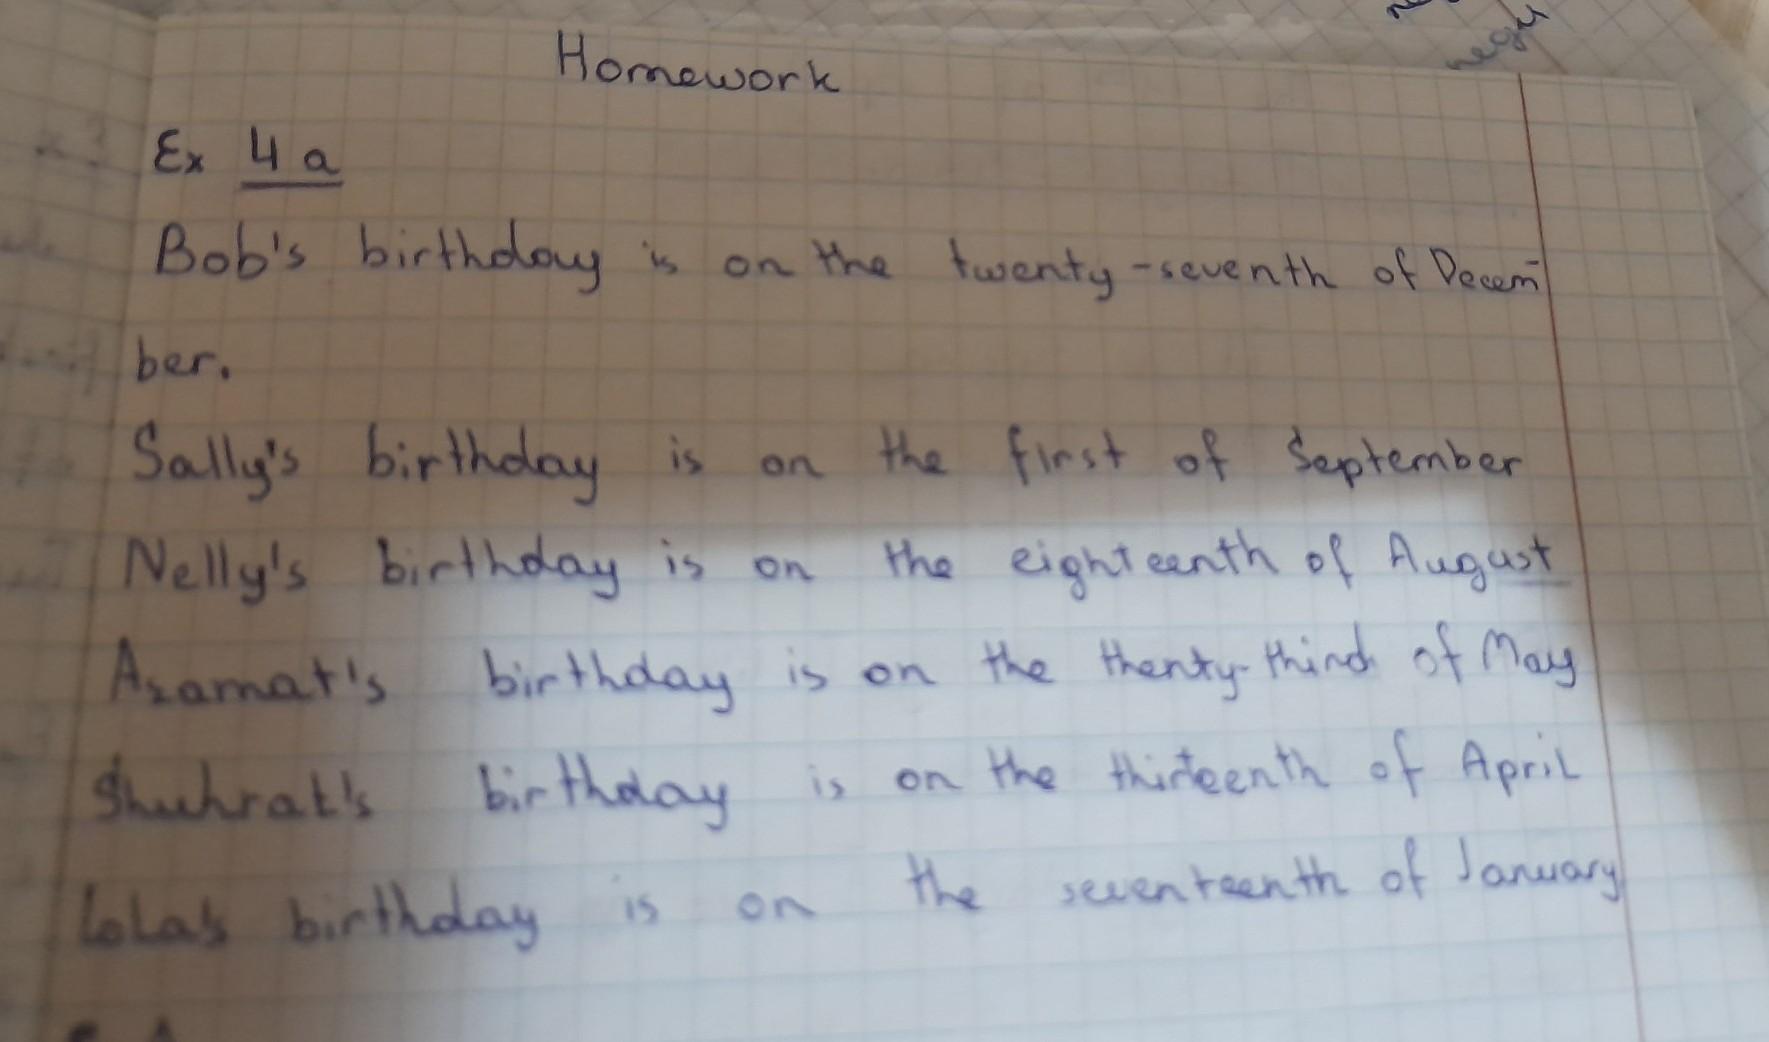 Homework
Ex 4 a
Bob's birthday is on the twenty-seventh of Decem-
ber.
Sally's birthday is on the first of September
Nelly's birthday is on the eighteenth of August
Azamat's birthday is on the thenty-third of May
Shuhrat's birthday is on the thirteenth of April
Lola's birthday is on the seventeenth of January